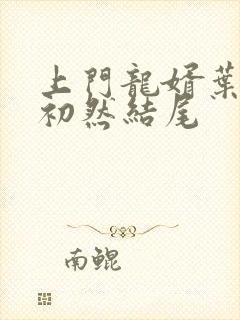 上門龍婿葉
初然結尾
南鯤